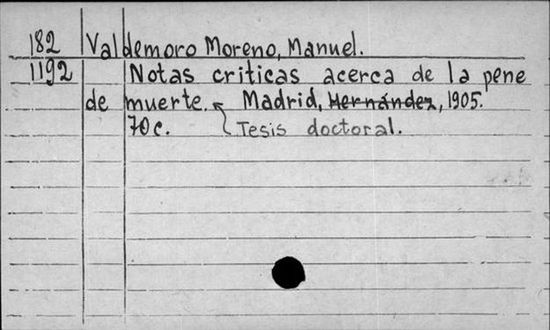 182 Valdemoro Moreno, Manuel.
1192 Notas criticas acerca de la pene
de muerte. Madrid, Hernández, 1905.
70c. Tesis doctoral.